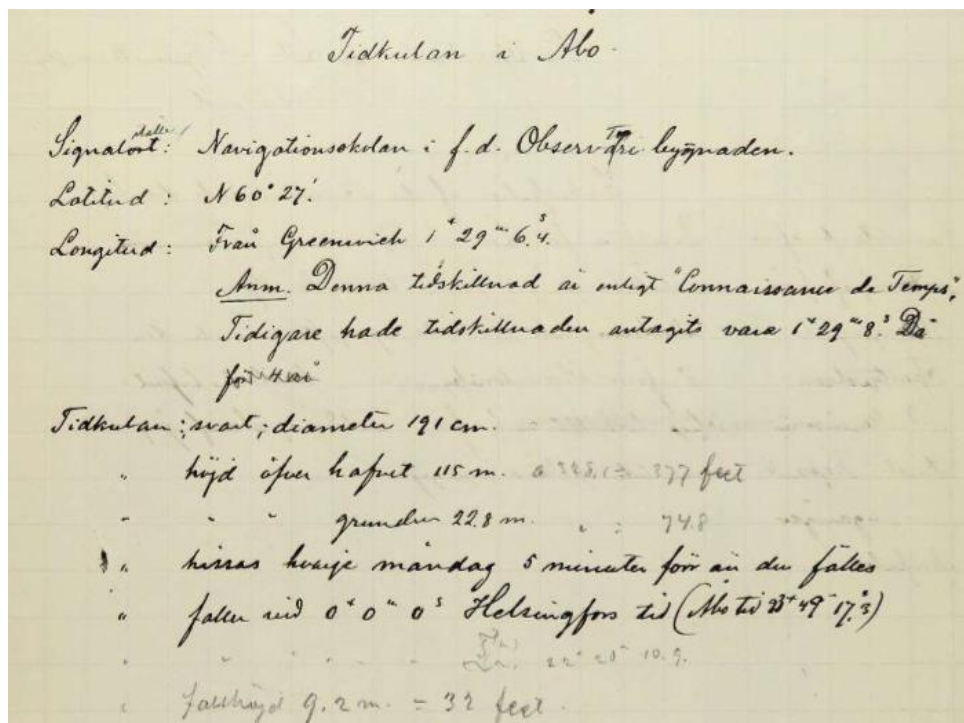 Tidkulan i Åbo.
Signalort: ställe Navigationsskolan i f.d. Observatorie byggnaden.
Latitud: N 60° 27'.
Longitud: Från Greenwich 1h 29m 6s.4.
Anm. Denna tidskillnad är enligt "Connaissance de Temps",
Tidigare hade tidskillnaden antagits vara 1h 29m 8s. Da
för
Tidkulan; svart; diameter 191 cm.
" höjd öfver hafvet 115 m. = 377 feet
" " " grunden 22.8 m. " = 74.8
" hissas hvarje måndag 5 minuter förr än den fälles
" faller vid 0h 0m 0s Helsingfors tid (Åbo tid 23h 49m 17s.3)
" " " " " 22h 20m 10.9.
" fallhöjd 9.2 m. = 32 feet.